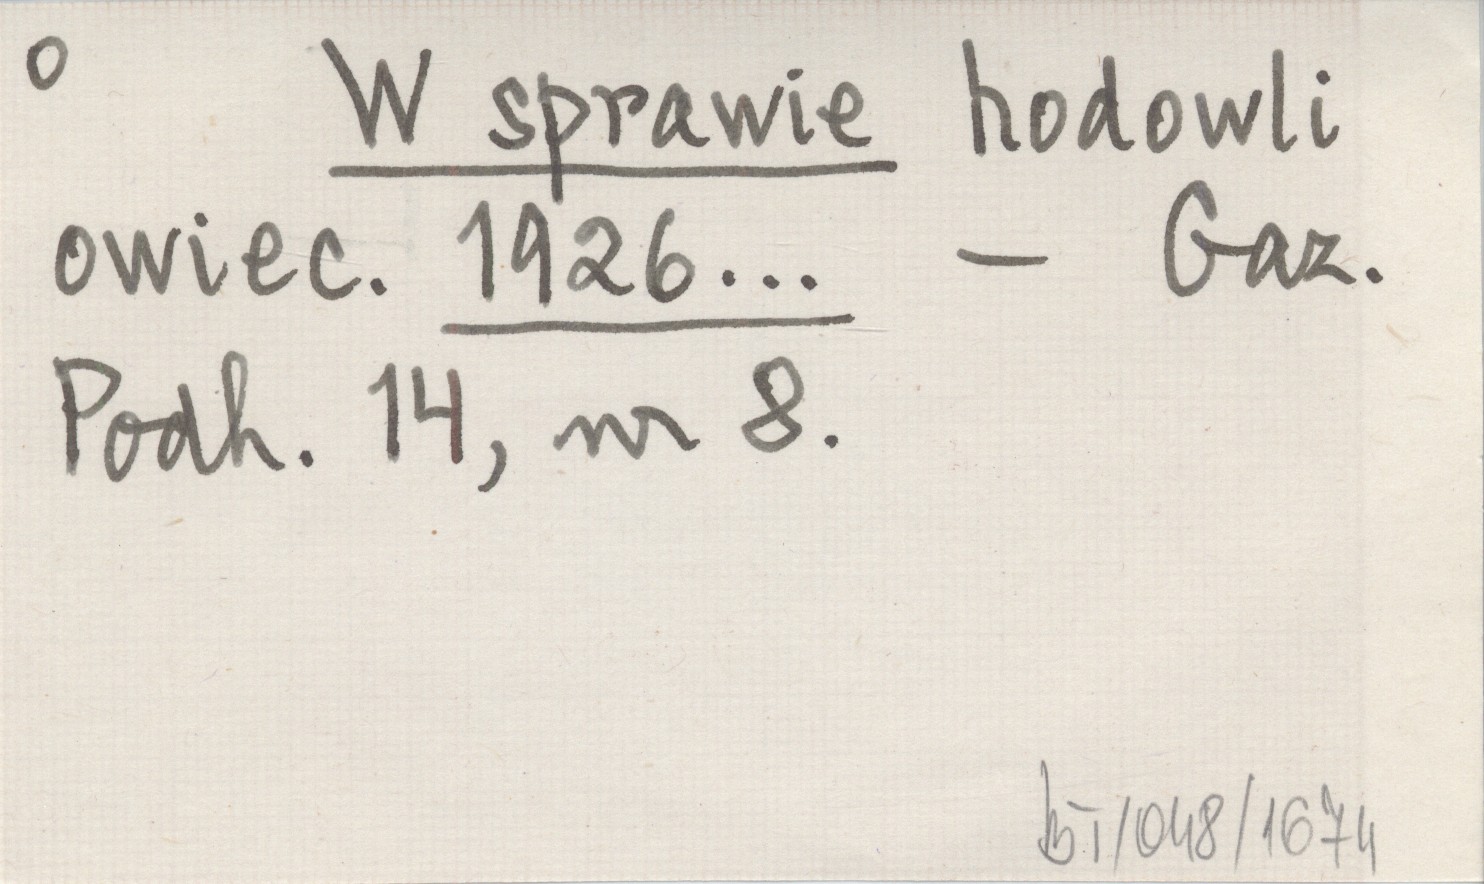 o W sprawie hodowli
owiec. 1926... - Gaz.
Podh. 14, nr 8.
bI/048/1674